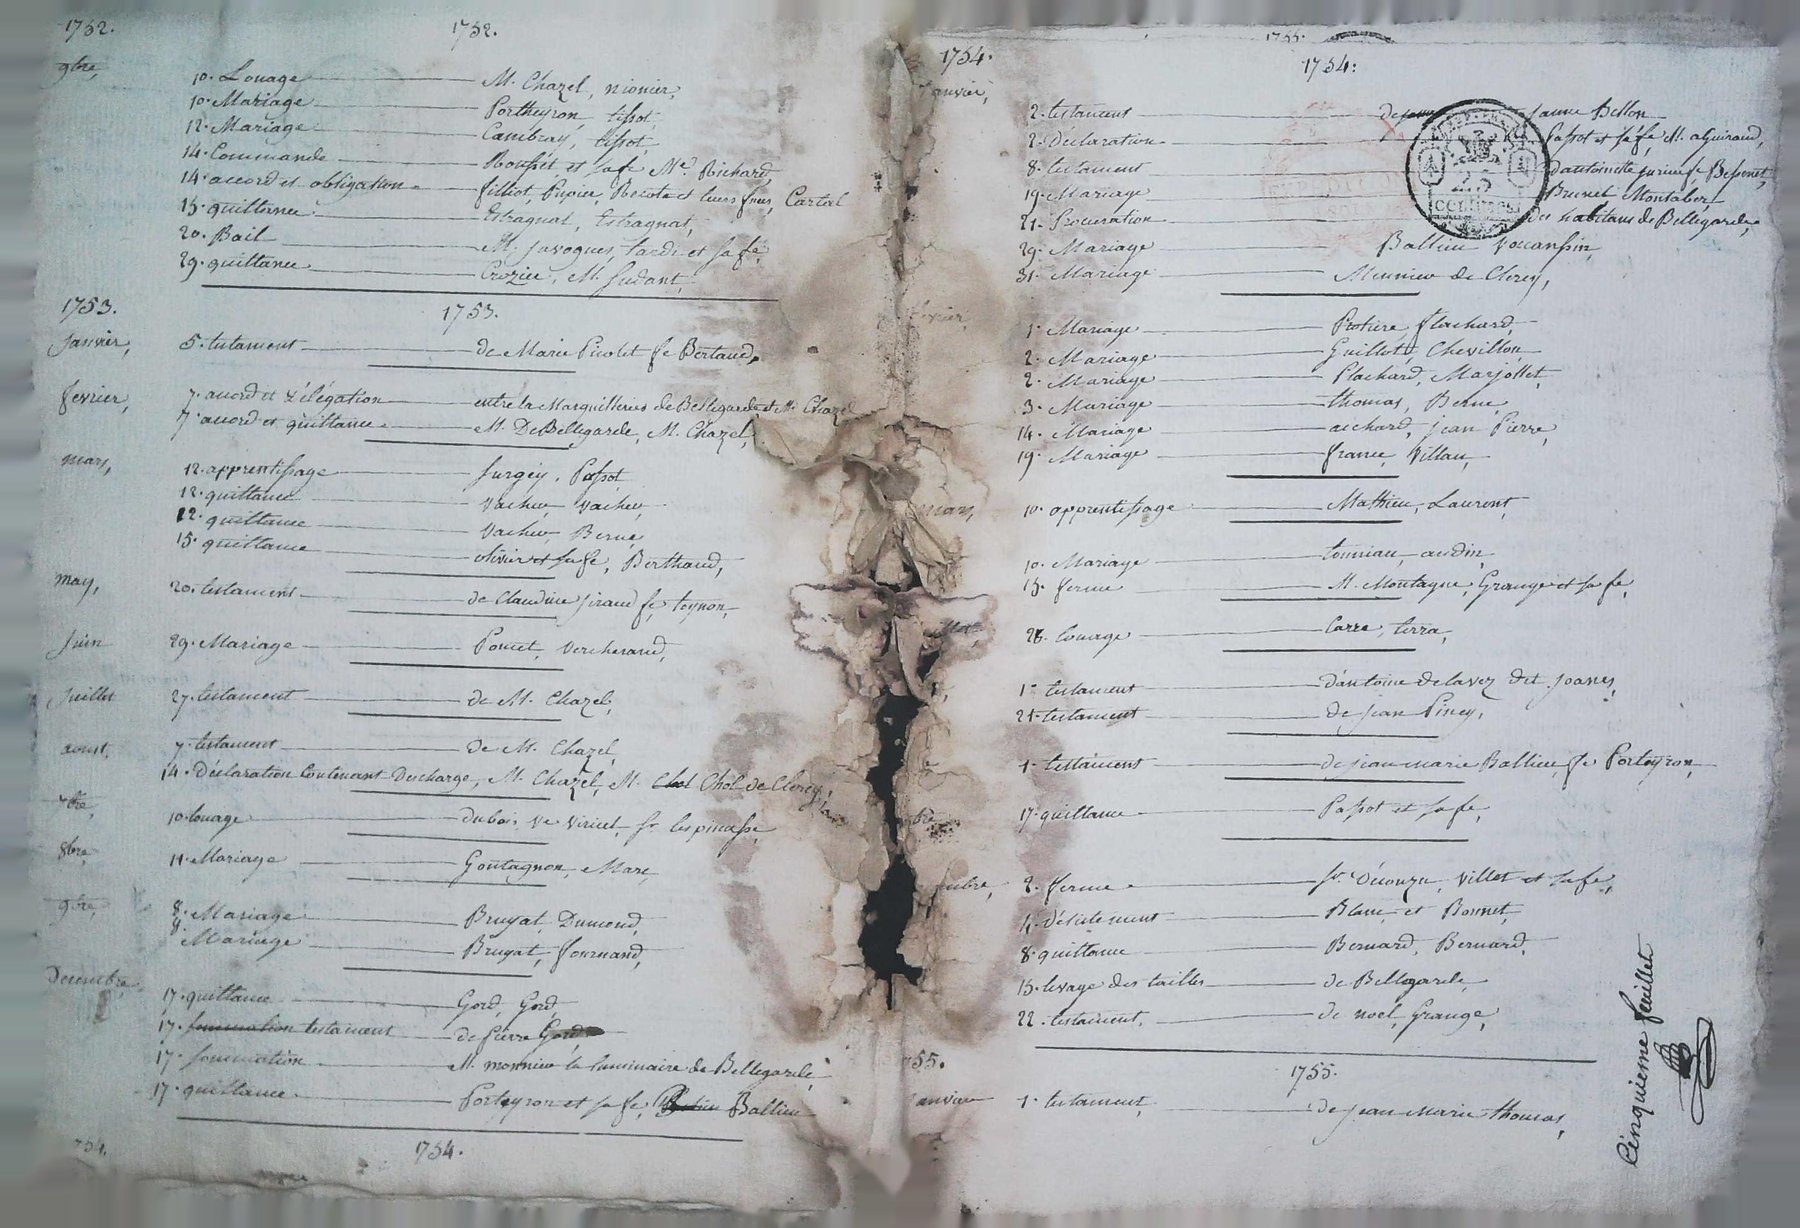 1752.
1752.
9bre,
10. Louage M. Chazel, nionier,
10. Mariage Portheyron, tissot,
12. Mariage Cambray, tissot,
14. Commande Rousset et sa fe, Me. Richard,
14. accord et obligation filliot, Pupier, Recote et leurs freres, Cartal
15. quittance Estragnat, Estragnat,
20. Bail M. Javogues, tardi et sa fe,
29. quittance Crozier, M. Sudant,
1753.
1753.
Janvier, 5. testament de Marie Picolet fe Bertaud,
fevrier, 7. accord et délégation entre les Marguilliers de Bellegarde et M. Chazel
7. accord et quittance M. DeBellegarde, M. Chazel,
mars, 12. apprentissage Surgey, Passot
12. quittance Vacheu Vacheu,
12. quittance Vacheu Berne,
15. quittance olivier et sa fe, Berthaud,
may, 20. testament de Claudine Giraud fe, teynon,
Juin 29. Mariage Poncet, Vercherand,
Juillet 27. testament de M. Chazel,
aoust, 7. testament de M. Chazel,
14. Déclaration Contenant Descharge, M. Chazel, M. Chol Chol de Clerey,
7bre, 10. louage dubois, ve Viricel, Sr. lespinasse,
8bre, 11. Mariage Goutagnon, Mare,
9bre, 8. Mariage Bruyat, Dumond,
Mariage Bruyat, fournand,
Decembre, 17. quittance Gord, Gord,
17. sommation testament de Pierre Gord
17. sommation M. monnier le luminaire de Bellegarde,
17. quittance Porteyron et sa fe, Ballieu
754. 1754.
1755.
1754.
1754:
anvier,
2. testament Janne Bellon
2. Déclaration Passot et sa fe, M. aguiraud,
8. testament d'antoinette jurieu fe Bessenet,
19. Mariage Brunet Montabert
21. Procuration des habitans de Bellegarde,
29. Mariage Ballieu Voeansson,
31. Mariage Meunier de Clerey,
fevrier, 1. Mariage Protiere flachard,
2. Mariage Guillot, Chevillon,
2. Mariage Plachard, Marjollet,
3. Mariage thomas, Berne,
14. Mariage aichard, Jean Pierre,
19. Mariage france, Villau,
mars, 10. apprentissage Mathieu, Laurent,
10. Mariage tonniau, audin,
15. ferme M. Montagne, Grange et sa fe,
26. louage Carre, terra,
1. testament d'antoine delavez dit Joanes,
21. testament de Jean Piney,
1. testament de Jeanmarie Ballieu, fe Porteyron,
bre 17. quittance Passot et sa fe,
mbre, 2. ferme Sr. Découzu, Villet et sa fe,
4. désistement Blanc et Bonnet,
8. quittance Bernard, Bernard,
15. levage des tailles de Bellegarde,
22. testament, de noel, Grange,
755. 1755.
anvier 1. testament, de Jean Marie thomas,
Cinquieme feuillet